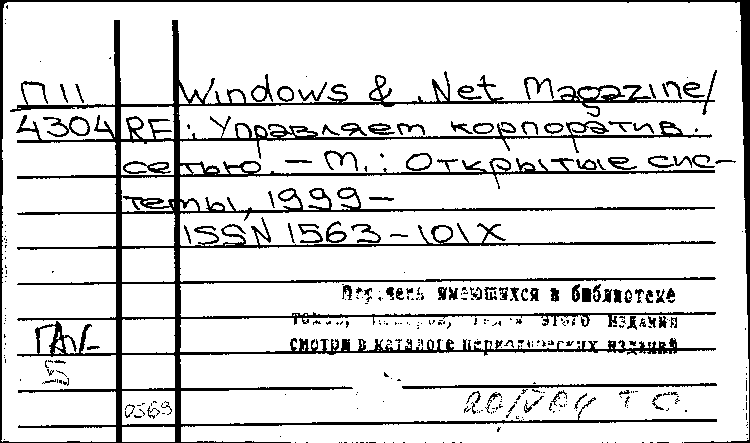 П11 Windows & .Net Magazine/
4304 RE: Управляет корпоратив.
сетью. – М.: Открытые сис-
темы, 1999 –
ISSN 1563-101X
Перечень имеющихся в библиотеке
томов, номеров, этого издания
смотри в каталоге периодических изданий
5
0369
20/V 04